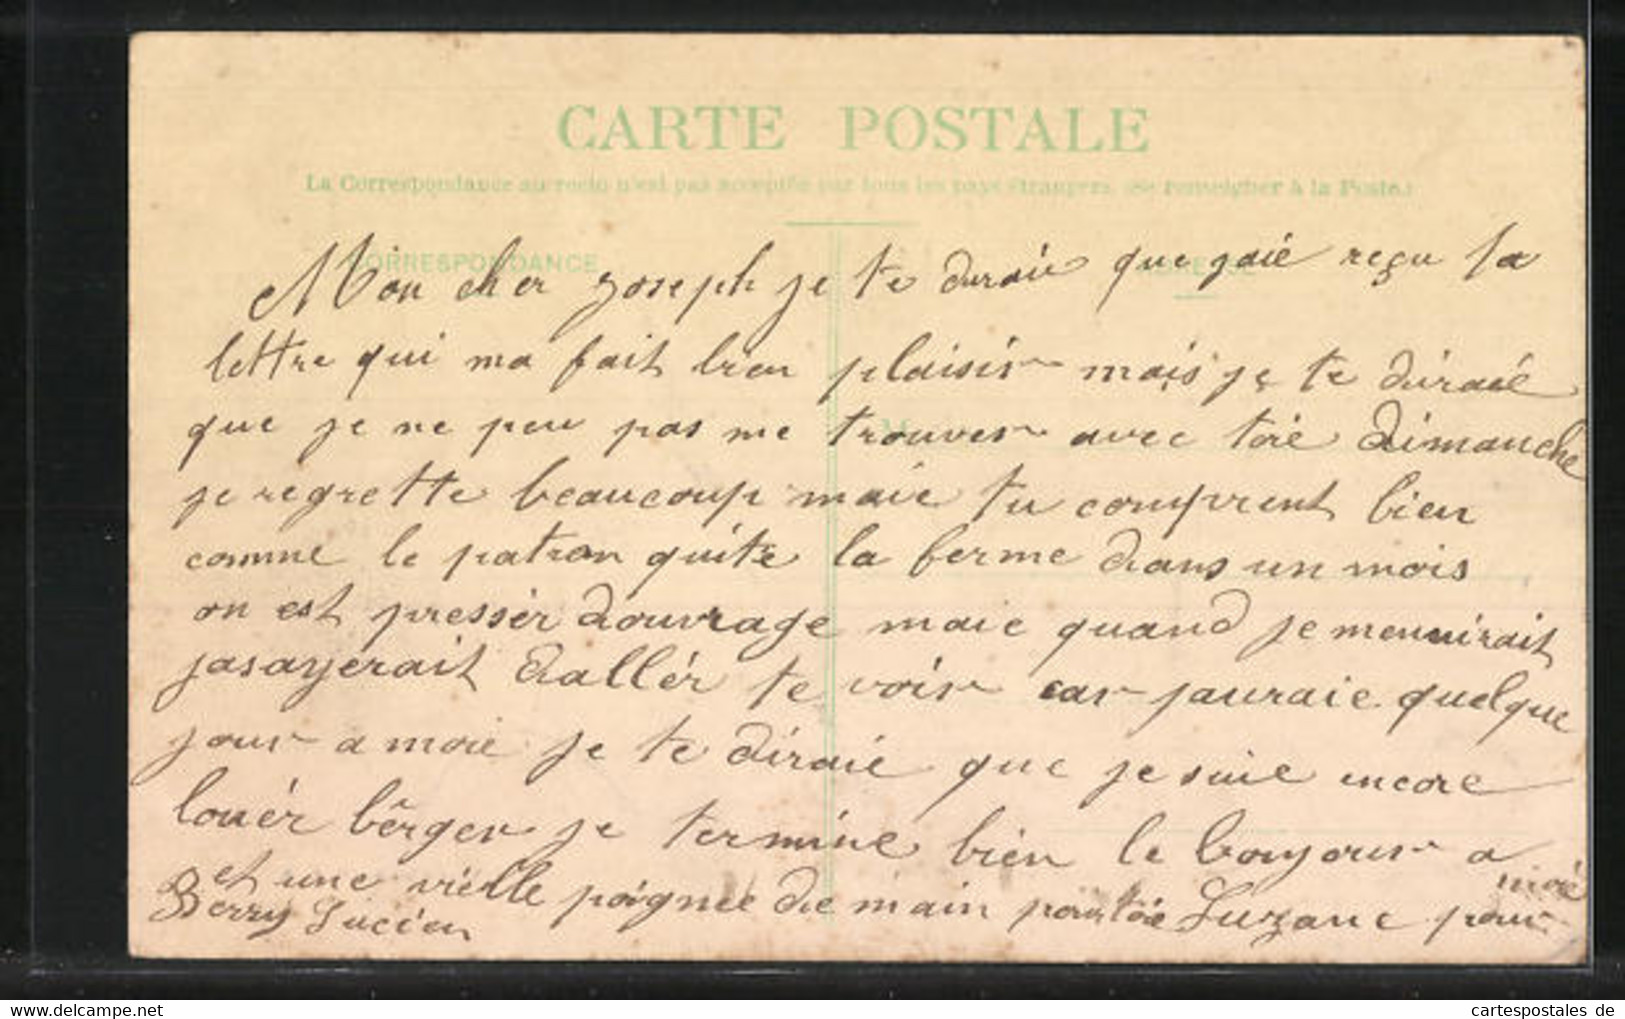 CARTE POSTALE
La Correspondance au recto n'est pas acceptée par tous les pays étrangers. (Se renseigner à la Poste.)
CORRESPONDANCE
Mon cher Joseph je te duraie que jaie reçu ta
lettre qui ma fait bien plaisir mais je te duraie
que je ne peu pas me trouver avec toie Dimanche
je regrette beaucoup maie tu comprent bien
comme le patron quite la ferme dans un mois
on est pressér douvrage maie quand je mennuirait
jasayerait dallér te voir car jauraie quelque
jour a moie je te diraie que je suie encore
louér bêrger je termine bien le bonjour a
moie
et une vieille poignee de main pour toie Suzane pour
Berry Lucien
www.cartespostales.de